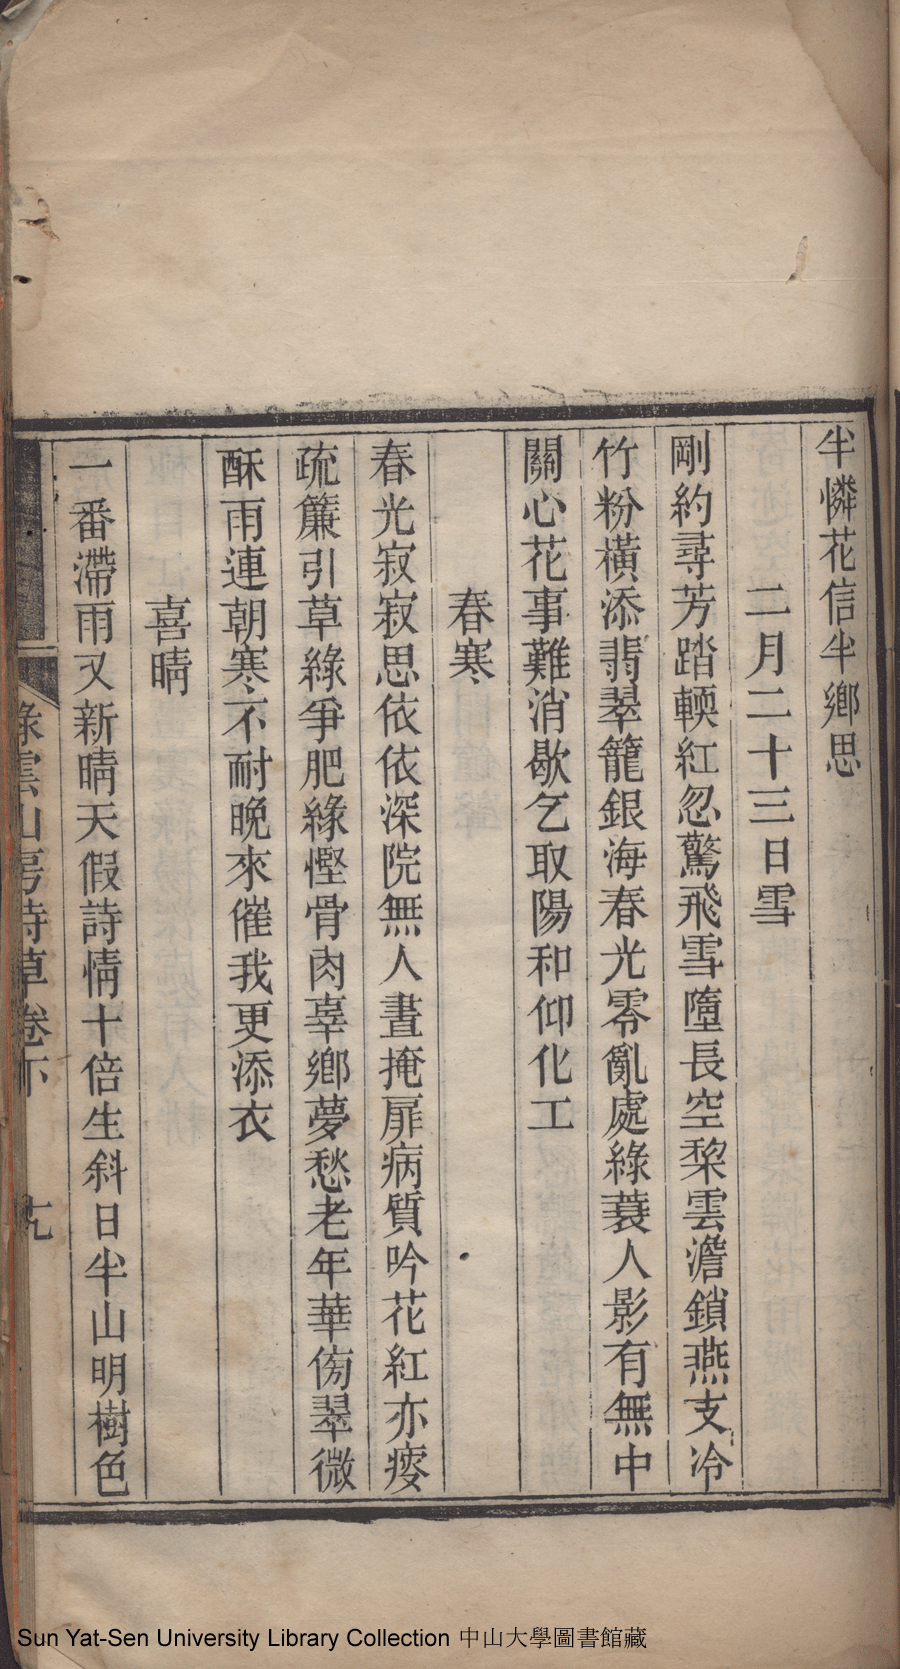 半憐花信半鄉思
二月二十三日雪
剛約尋芳踏輭紅忽驚飛雪墮長空棃雲澹鎖燕支冷
竹粉橫添翡翠籠銀海春光零亂處綠蓑人影有無中
關心花事難消歇乞取陽和仰化工
春寒
春光寂寂思依依深院無人晝掩扉病質吟花紅亦瘦
疏簾引草綠爭肥緣慳骨肉辜鄉夢愁老年華傍翠微
酥雨連朝寒不耐晚來催我更添衣
喜晴
一番滯雨又新晴天假詩情十倍生斜日半山明樹色
綠雲山房詩草卷下
Sun Yat-Sen University Library Collection 中山大學圖書館藏